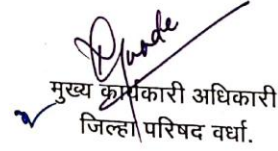 मुख्य कार्यकारी अधिकारी
जिल्हा परिषद वर्धा.